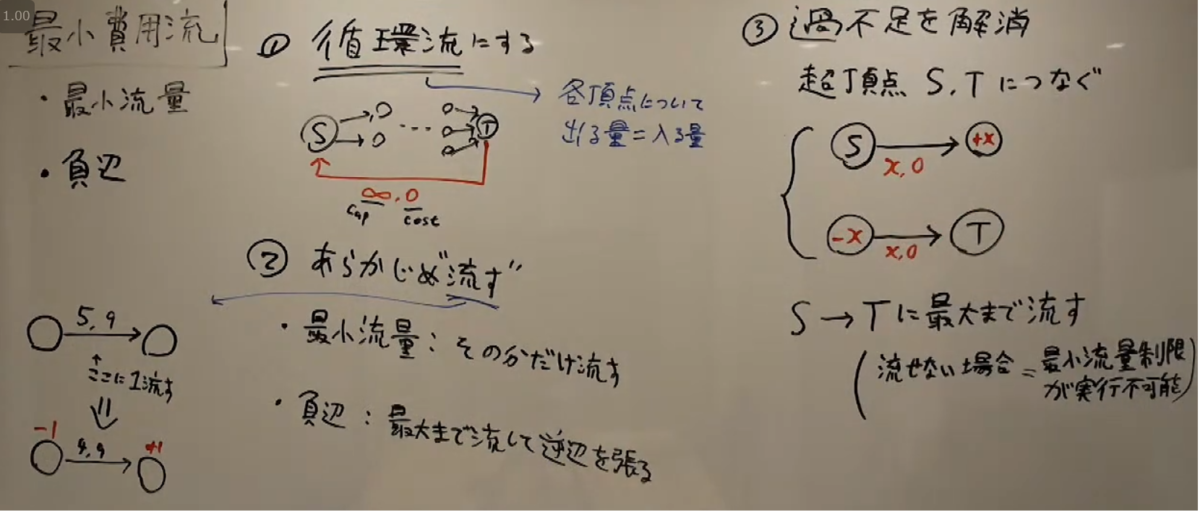 1.00
最小費用流
・最小流量
・負辺
① 循環流にする
各頂点について
出る量=入る量
S
...
T
∞, 0
Cap
cost
② あらかじめ"流す"
・最小流量: その分だけ流す
・負辺: 最大まで流して逆辺を張る
5, 9
↑
ここに1流す
⇓
-1
4, 9
+1
③ 過不足を解消
超頂点 S, T につなぐ
S
+x
x, 0
-x
T
x, 0
S → T に最大まで流す
(流せない場合=最小流量制限
が実行不可能)